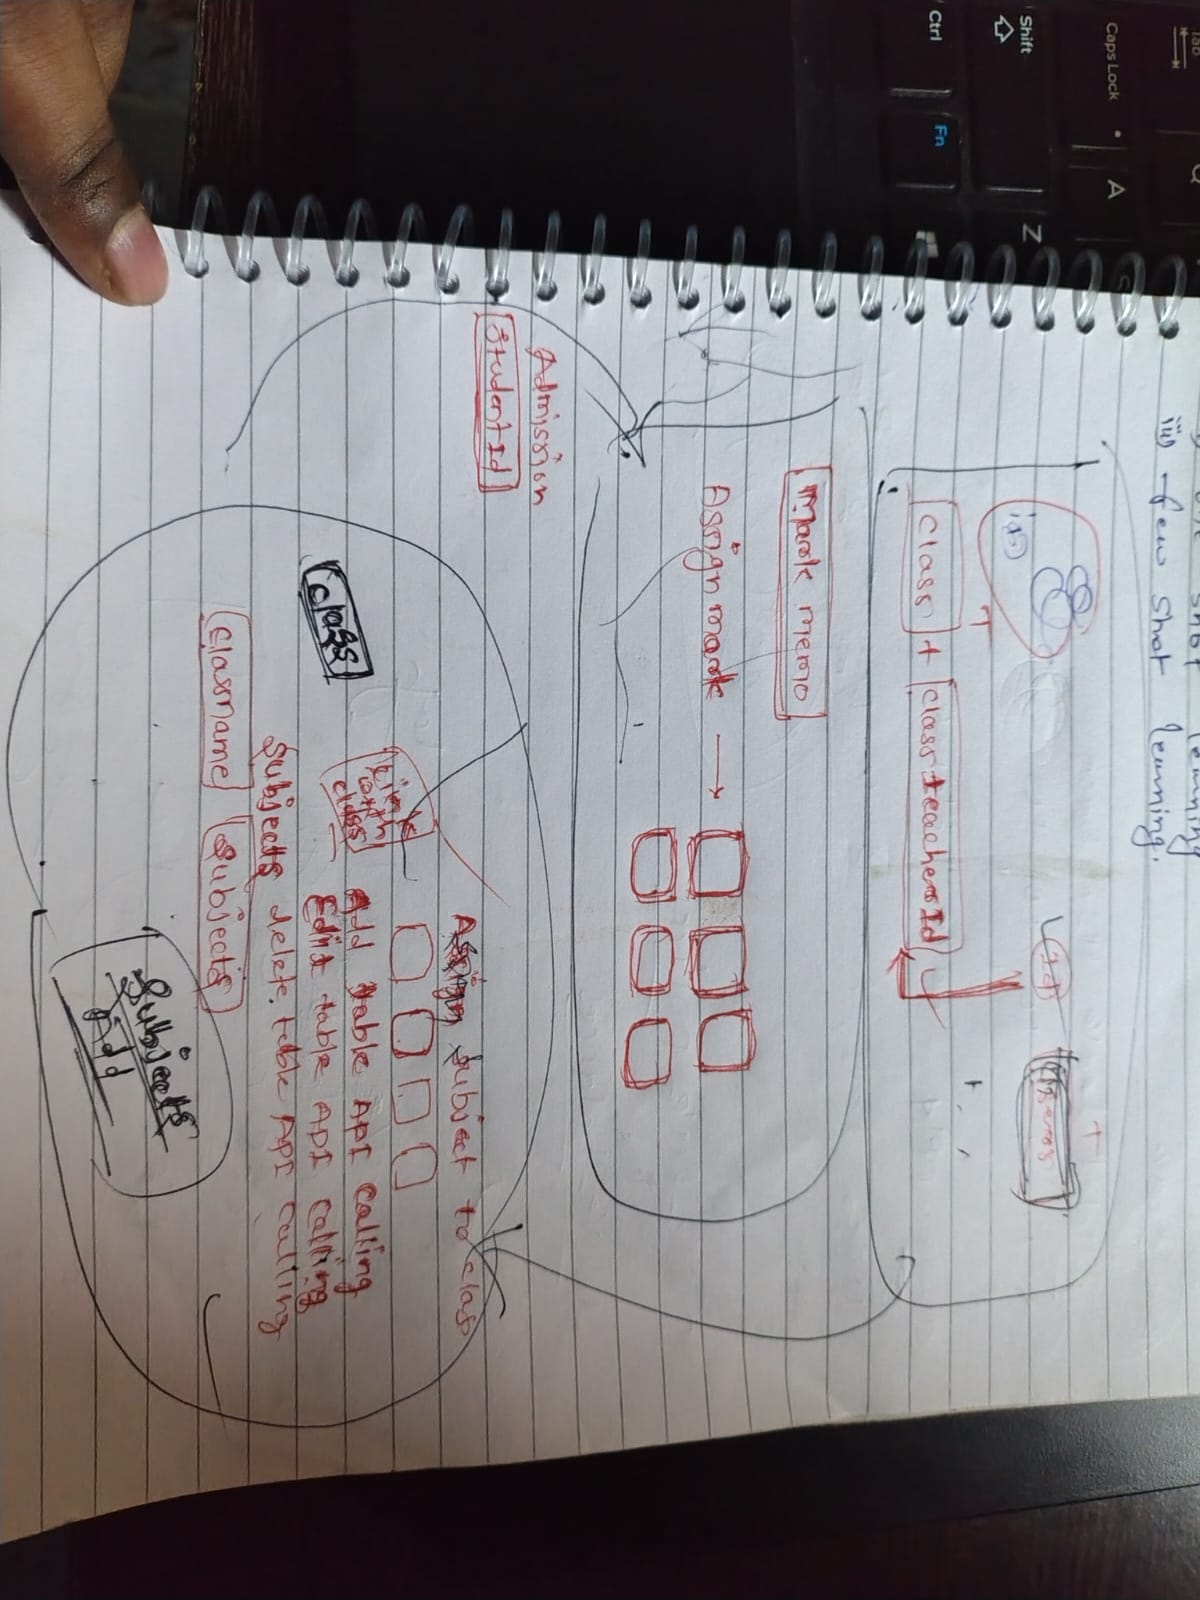 Tab
Q
Caps Lock
A
S
Shift
Z
Ctrl
Fn
one shot learning
iii) few shot learning.
Id
users
class + class teachers Id
Mark memo
Assign mark
Admission
StudentId
Assign subject to class
class
class
Add table API Calling
Edit table API Calling
Subjects delete table API Calling
Classname Subjects
Subjects
Add